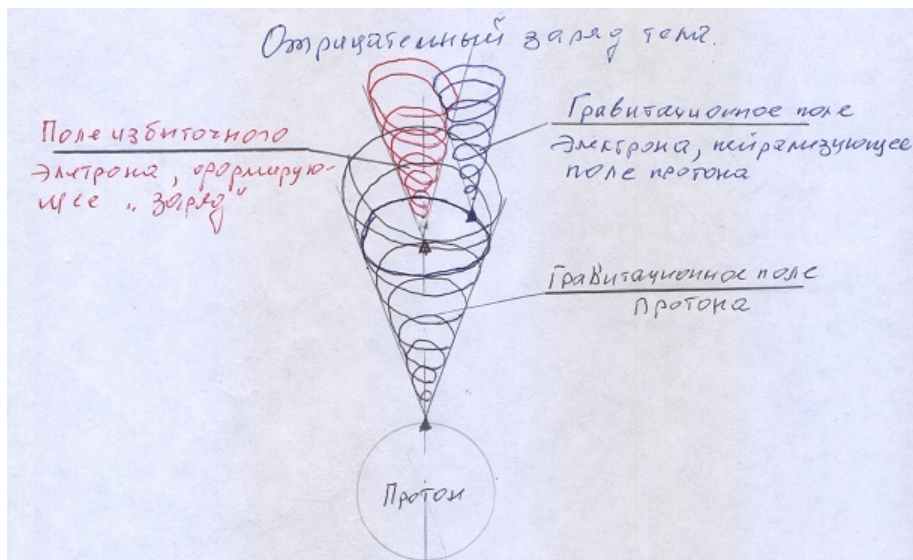 Отрицательный заряд тела.
Поле избыточного
электрона, формирую-
щее „заряд"
Гравитационное поле
электрона, нейтрализующее
поле протона
Гравитационное поле
протона
Протон